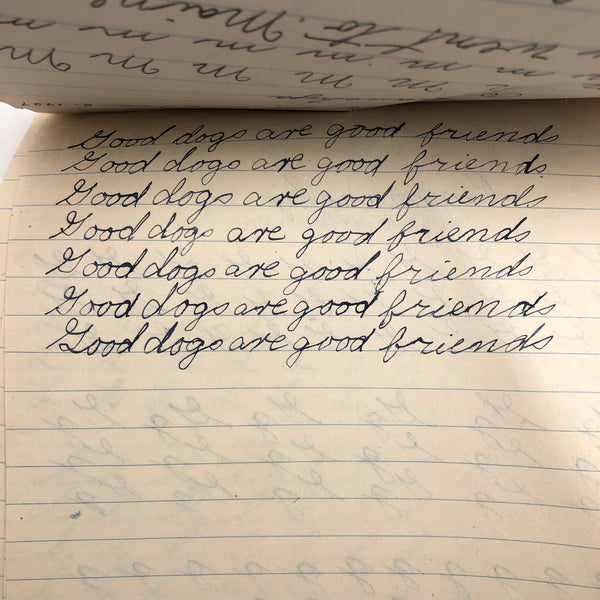 went to Maine
m m m m
m m m m
Good dogs are good friends
Good dogs are good friends
Good dogs are good friends
Good dogs are good friends
Good dogs are good friends
Good dogs are good friends
Good dogs are good friends